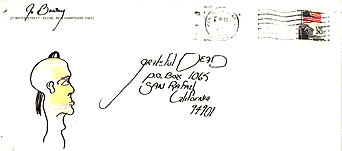 27 WATER STREET KEENE, NEW HAMPSHIRE 03431
grateful DEAD
P.O. BOX 1065
SAN RAFAEL
California
94901